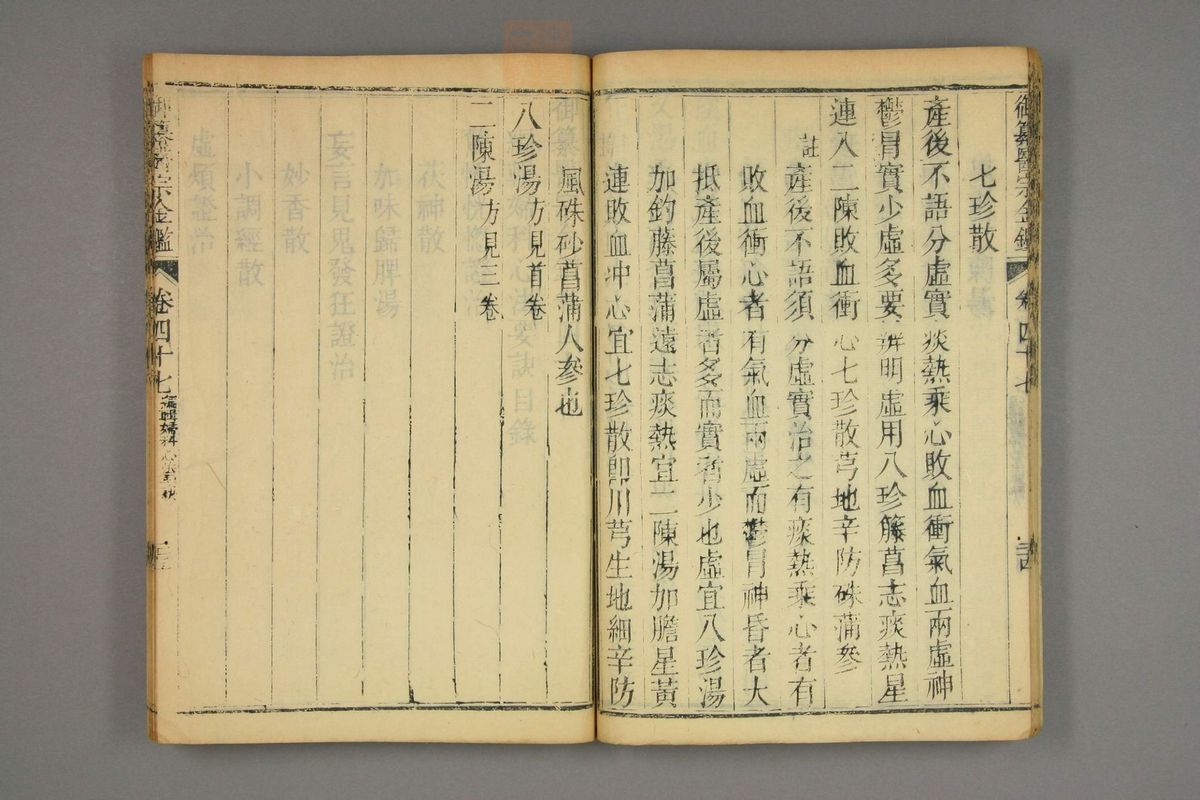 御纂醫宗金鑑
卷四十七
七珍散
產後不語分虛實痰熱乘心敗血衝氣血兩虛神
鬱冒實少虛多要辨明虛用八珍籐菖志痰熱星
連入二陳敗血衝心七珍散芎地辛防硃蒲參
註產後不語須分虛實治之有痰熱乘心者有
敗血衝心者有氣血兩虛而鬱冒神昏者大
抵產後屬虛者多而實者少也虛宜八珍湯
加釣藤菖蒲遠志痰熱宜二陳湯加膽星黃
連敗血冲心宜七珍散卽川芎生地細辛防
風硃砂菖蒲人參也
八珍湯方見首卷
二陳湯方見三卷
御纂醫宗金鑑
卷四十七
編輯婦科心法要訣